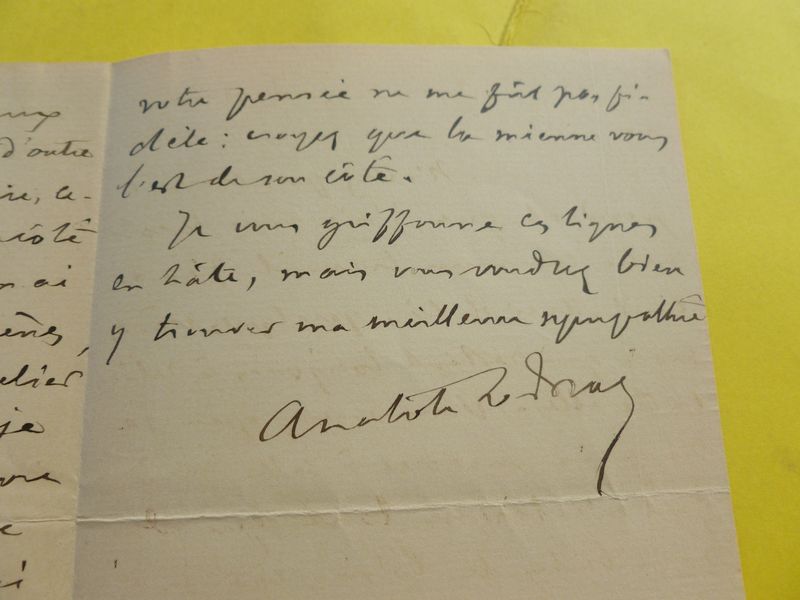 ux
d'outre
ire, ce-
côté
n ai
ènes,
elier
je
vre
e
i
votre pensée ne me fût pas fi-
dèle : croyez que la mienne vous
l'est de son côté.
Je vous griffonne ces lignes
en hâte, mais vous voudrez bien
y trouver ma meilleure sympathie
Anatole Le Braz